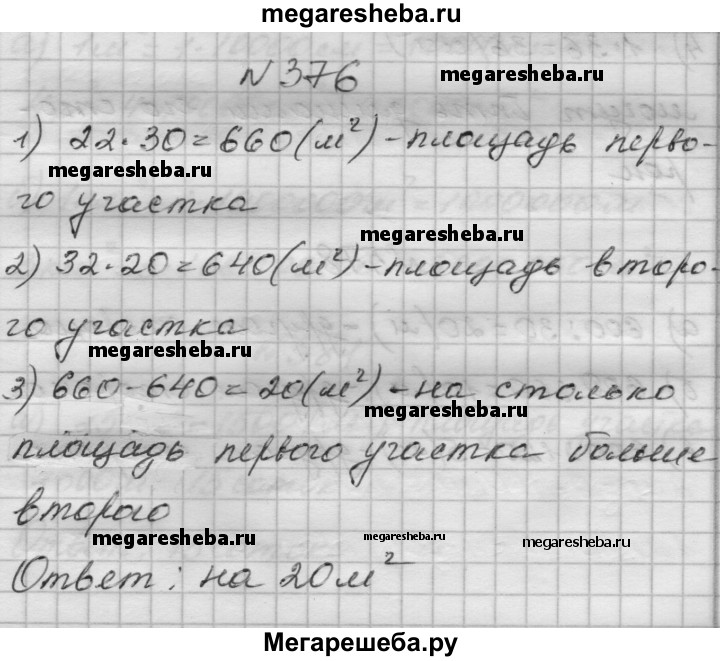 megaresheba.ru
N 376
megaresheba.ru
1) 22·30=660(м²)-площадь перво-
megaresheba.ru
го участка
megaresheba.ru
2) 32·20=640(м²)-площадь второ-
го участка
megaresheba.ru
3) 660-640=20(м²)-на столько
megaresheba.ru
площадь первого участка больше
второго
megaresheba.ru megaresheba.ru megaresheba.ru
Ответ: на 20м²
Мегарешеба.ру